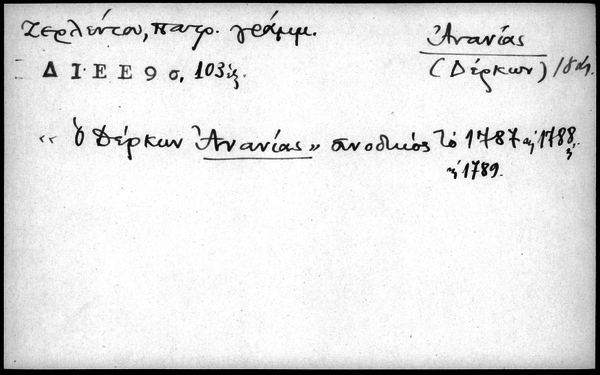 Ζερλέντου, πατρ. γράμμ.
Ἀνανίας
(Δέρκων) 18 αἰ.
Δ Ι Ε Ε 9 σ. 103 ἑξ.
“ ὁ Δέρκων Ἀνανίας „ συνοδικός τό 1787 καί 1788,
καί 1789.